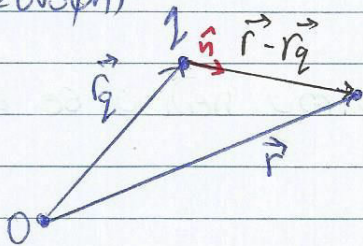 q
n̂
r⃗ - r⃗_q
r⃗_q
r⃗
O